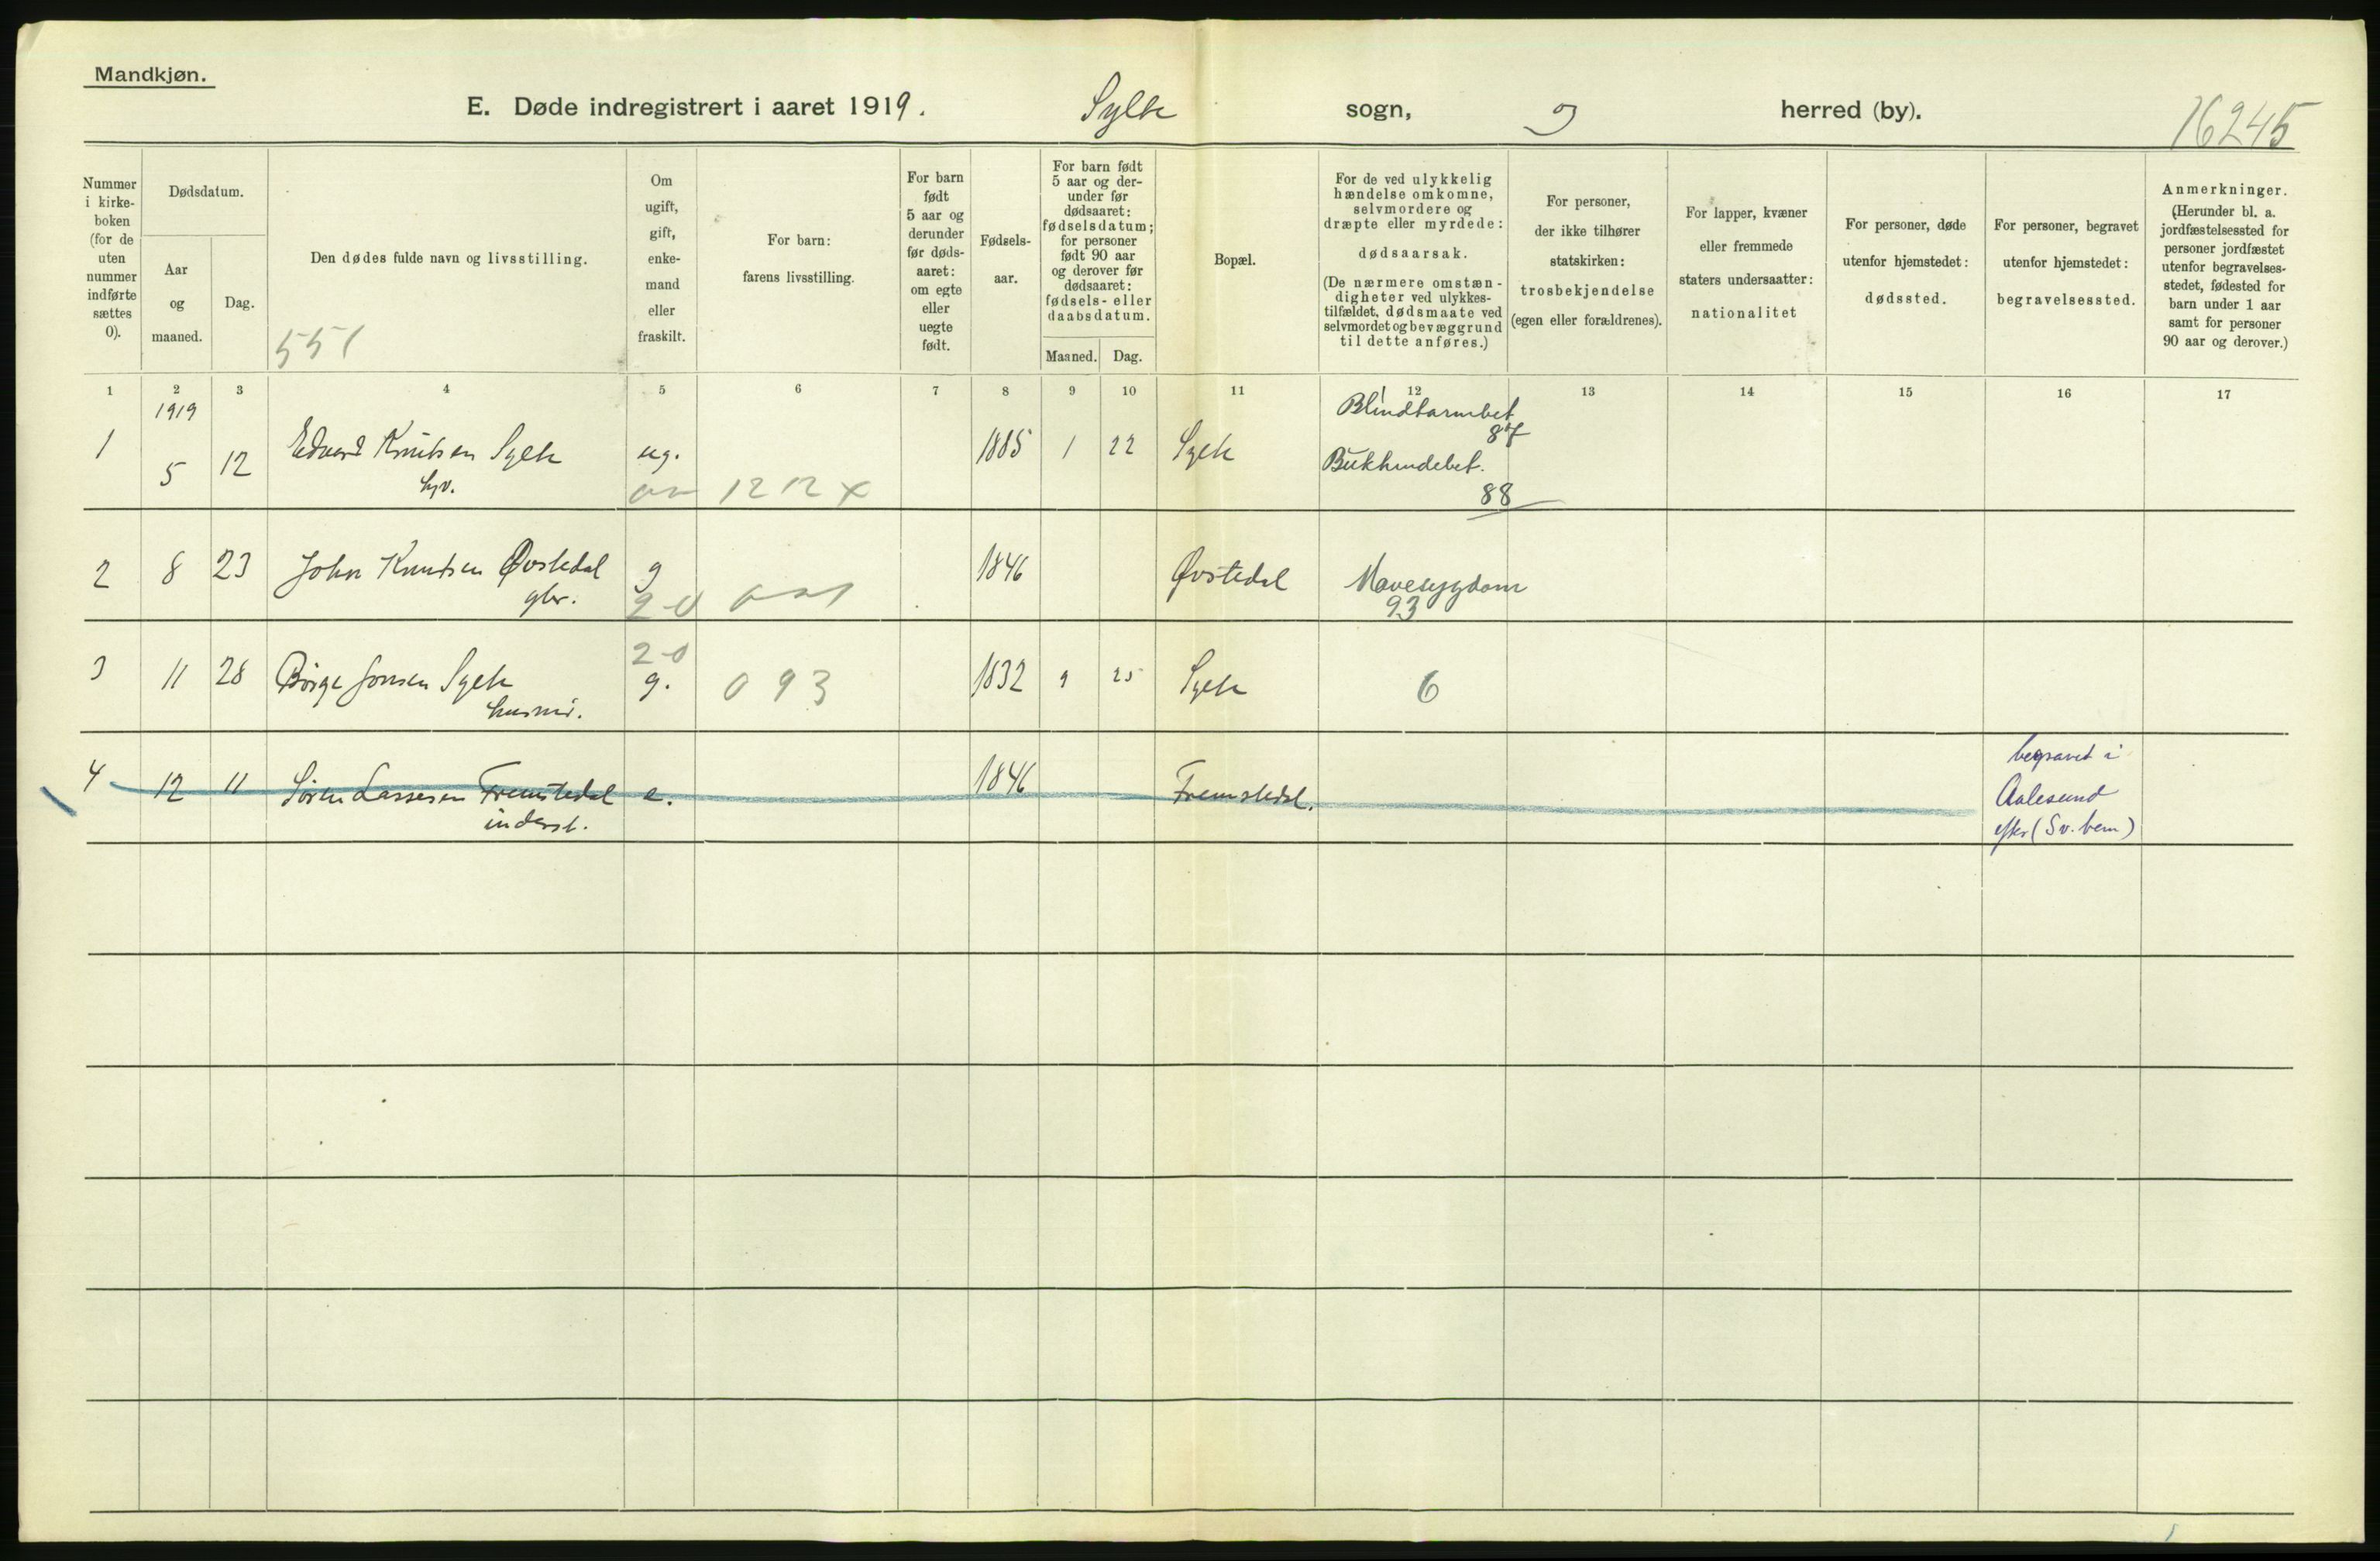 Mandkjøn.
E. Døde indregistrert i aaret 1919. Sylte sogn, herred (by). 16245
Nummer i kirke-boken (for de uten nummer indførte sættes 0).
Dødsdatum.
Aar og maaned.
Dag.
Den dødes fulde navn og livsstilling.
551
Om ugift, gift, enke-mand eller fraskilt.
For barn: farens livsstilling.
For barn født 5 aar og derunder før døds-aaret: om egte eller uegte født.
Fødsels-aar.
For barn født 5 aar og der-under før dødsaaret: fødselsdatum; for personer født 90 aar og derover før dødsaaret: fødsels- eller daabsdatum.
Maaned. Dag.
Bopæl.
For de ved ulykkelig hændelse omkomne, selvmordere og dræpte eller myrdede: dødsaarsak. (De nærmere omstæn-digheter ved ulykkes-tilfældet, dødsmaate ved selvmordet og bevæggrund til dette anføres.)
For personer, der ikke tilhører statskirken: trosbekjendelse (egen eller forældrenes).
For lapper, kvæner eller fremmede staters undersaatter: nationalitet
For personer, døde utenfor hjemstedet: dødssted.
For personer, begravet utenfor hjemstedet: begravelsessted.
Anmerkninger. (Herunder bl. a. jordfæstelsessted for personer jordfæstet utenfor begravelses-stedet, fødested for barn under 1 aar samt for personer 90 aar og derover.)
1 2 3 4 5 6 7 8 9 10 11 12 13 14 15 16 17
1919
1 5 12 Edvard Knutsen Sylte ug. 1885 1 22 Sylte Blindtarmbet. 87
Bukhindebet. 88
1212 X
2 8 23 John Knutsen Øvstedal g 1846 Øvstedal Mavesygdom
gbr. 93
20
3 11 28 Børge Jonsen Sylte g. 093 1832 9 25 Sylte 6
husm.
4 12 11 Søren Lassesen Fremstedal e. 1846 Fremstedal. begravet i
inderst. Aalesund
efter (Sv. bem)